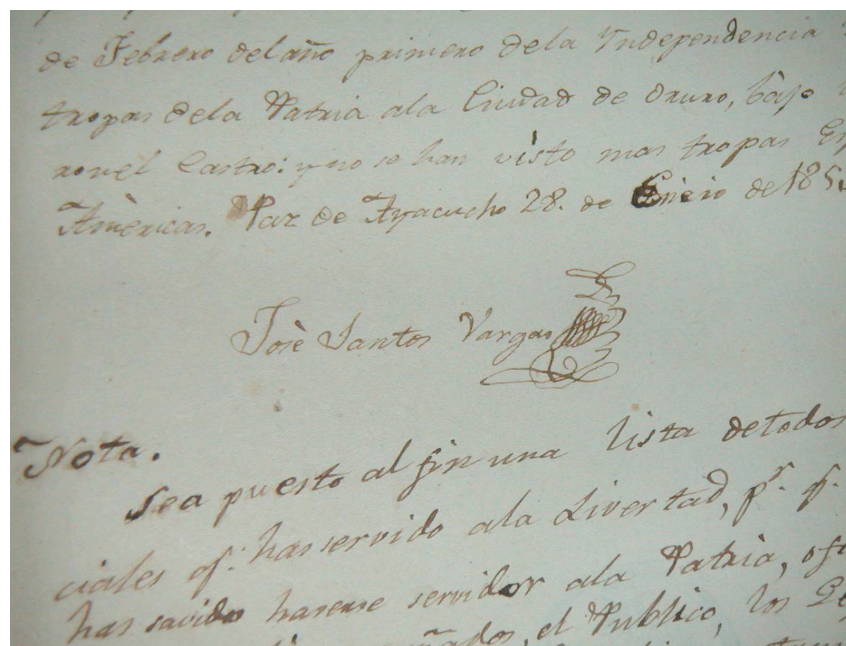 de Febrero del año primero dela Yndependencia
tropas dela Patria ala Ciudad de Oruro, bajo
ronel Castro: y no se han visto mas tropas Esp
Amèricas. Paz de Ayacucho 28. de Enèro de 185
Josè Santos Vargas
Nota.
Sea puesto al fin una lista detodos
ciales q.ᵉ han servido ala Livertad, p.ʳ q.ᵉ
han savido haserse servidor ala Patria, ofi
el Publico, los